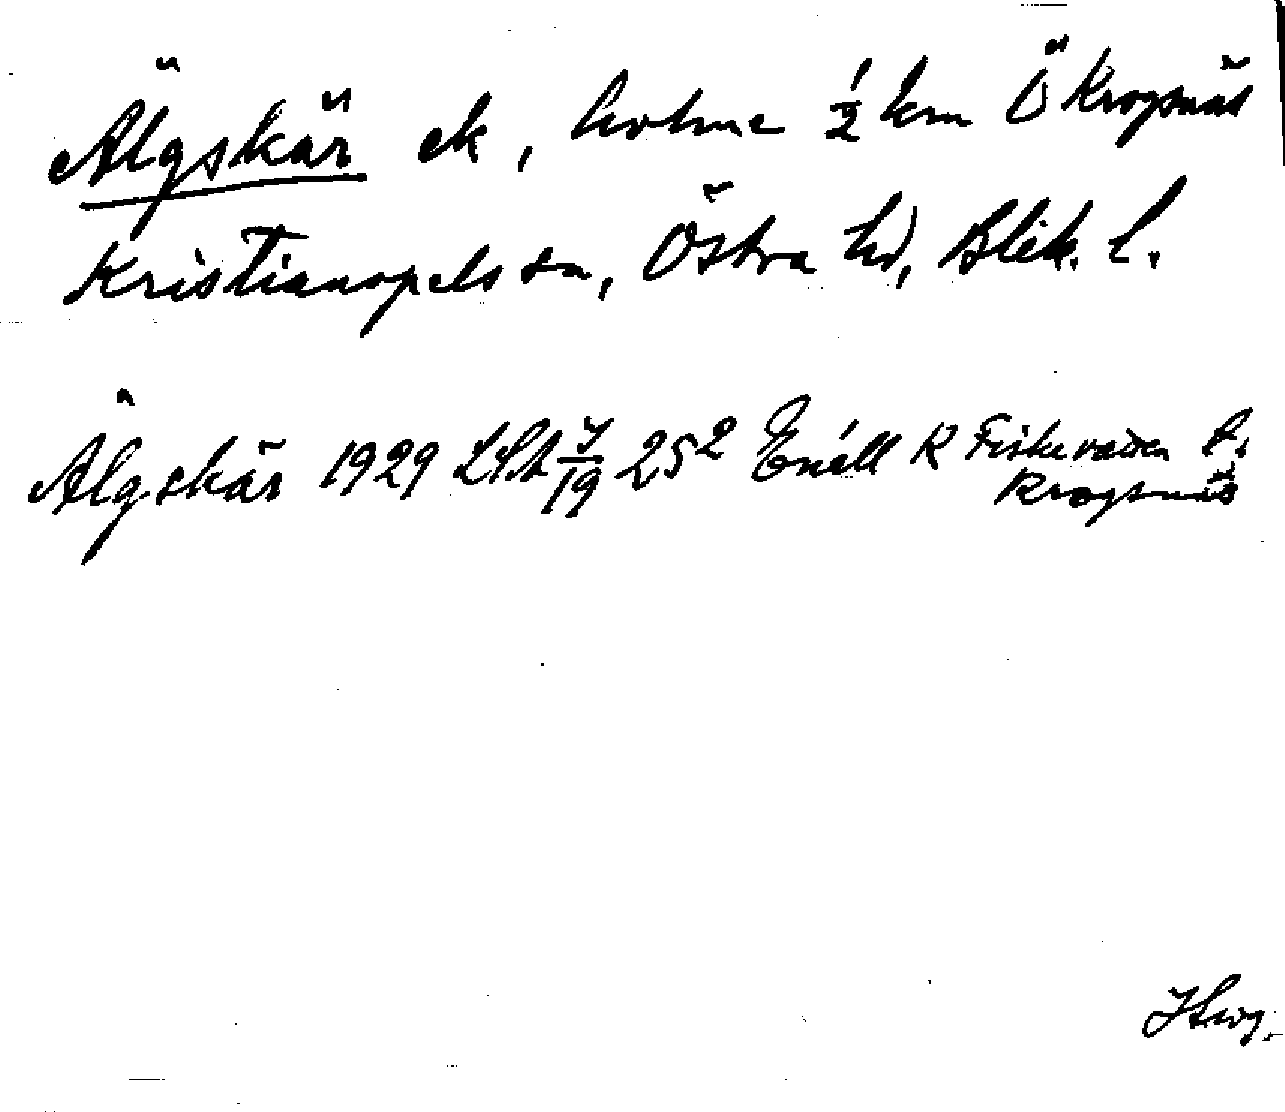 Älgskär ek, holme ½ km Ö Krogsnäs
Kristianopels sn, Östra hd, Blek. l.
Älgskär 1929 LSA 7/19 25² Enéll R Fiskevaden t.
Krogsnäs